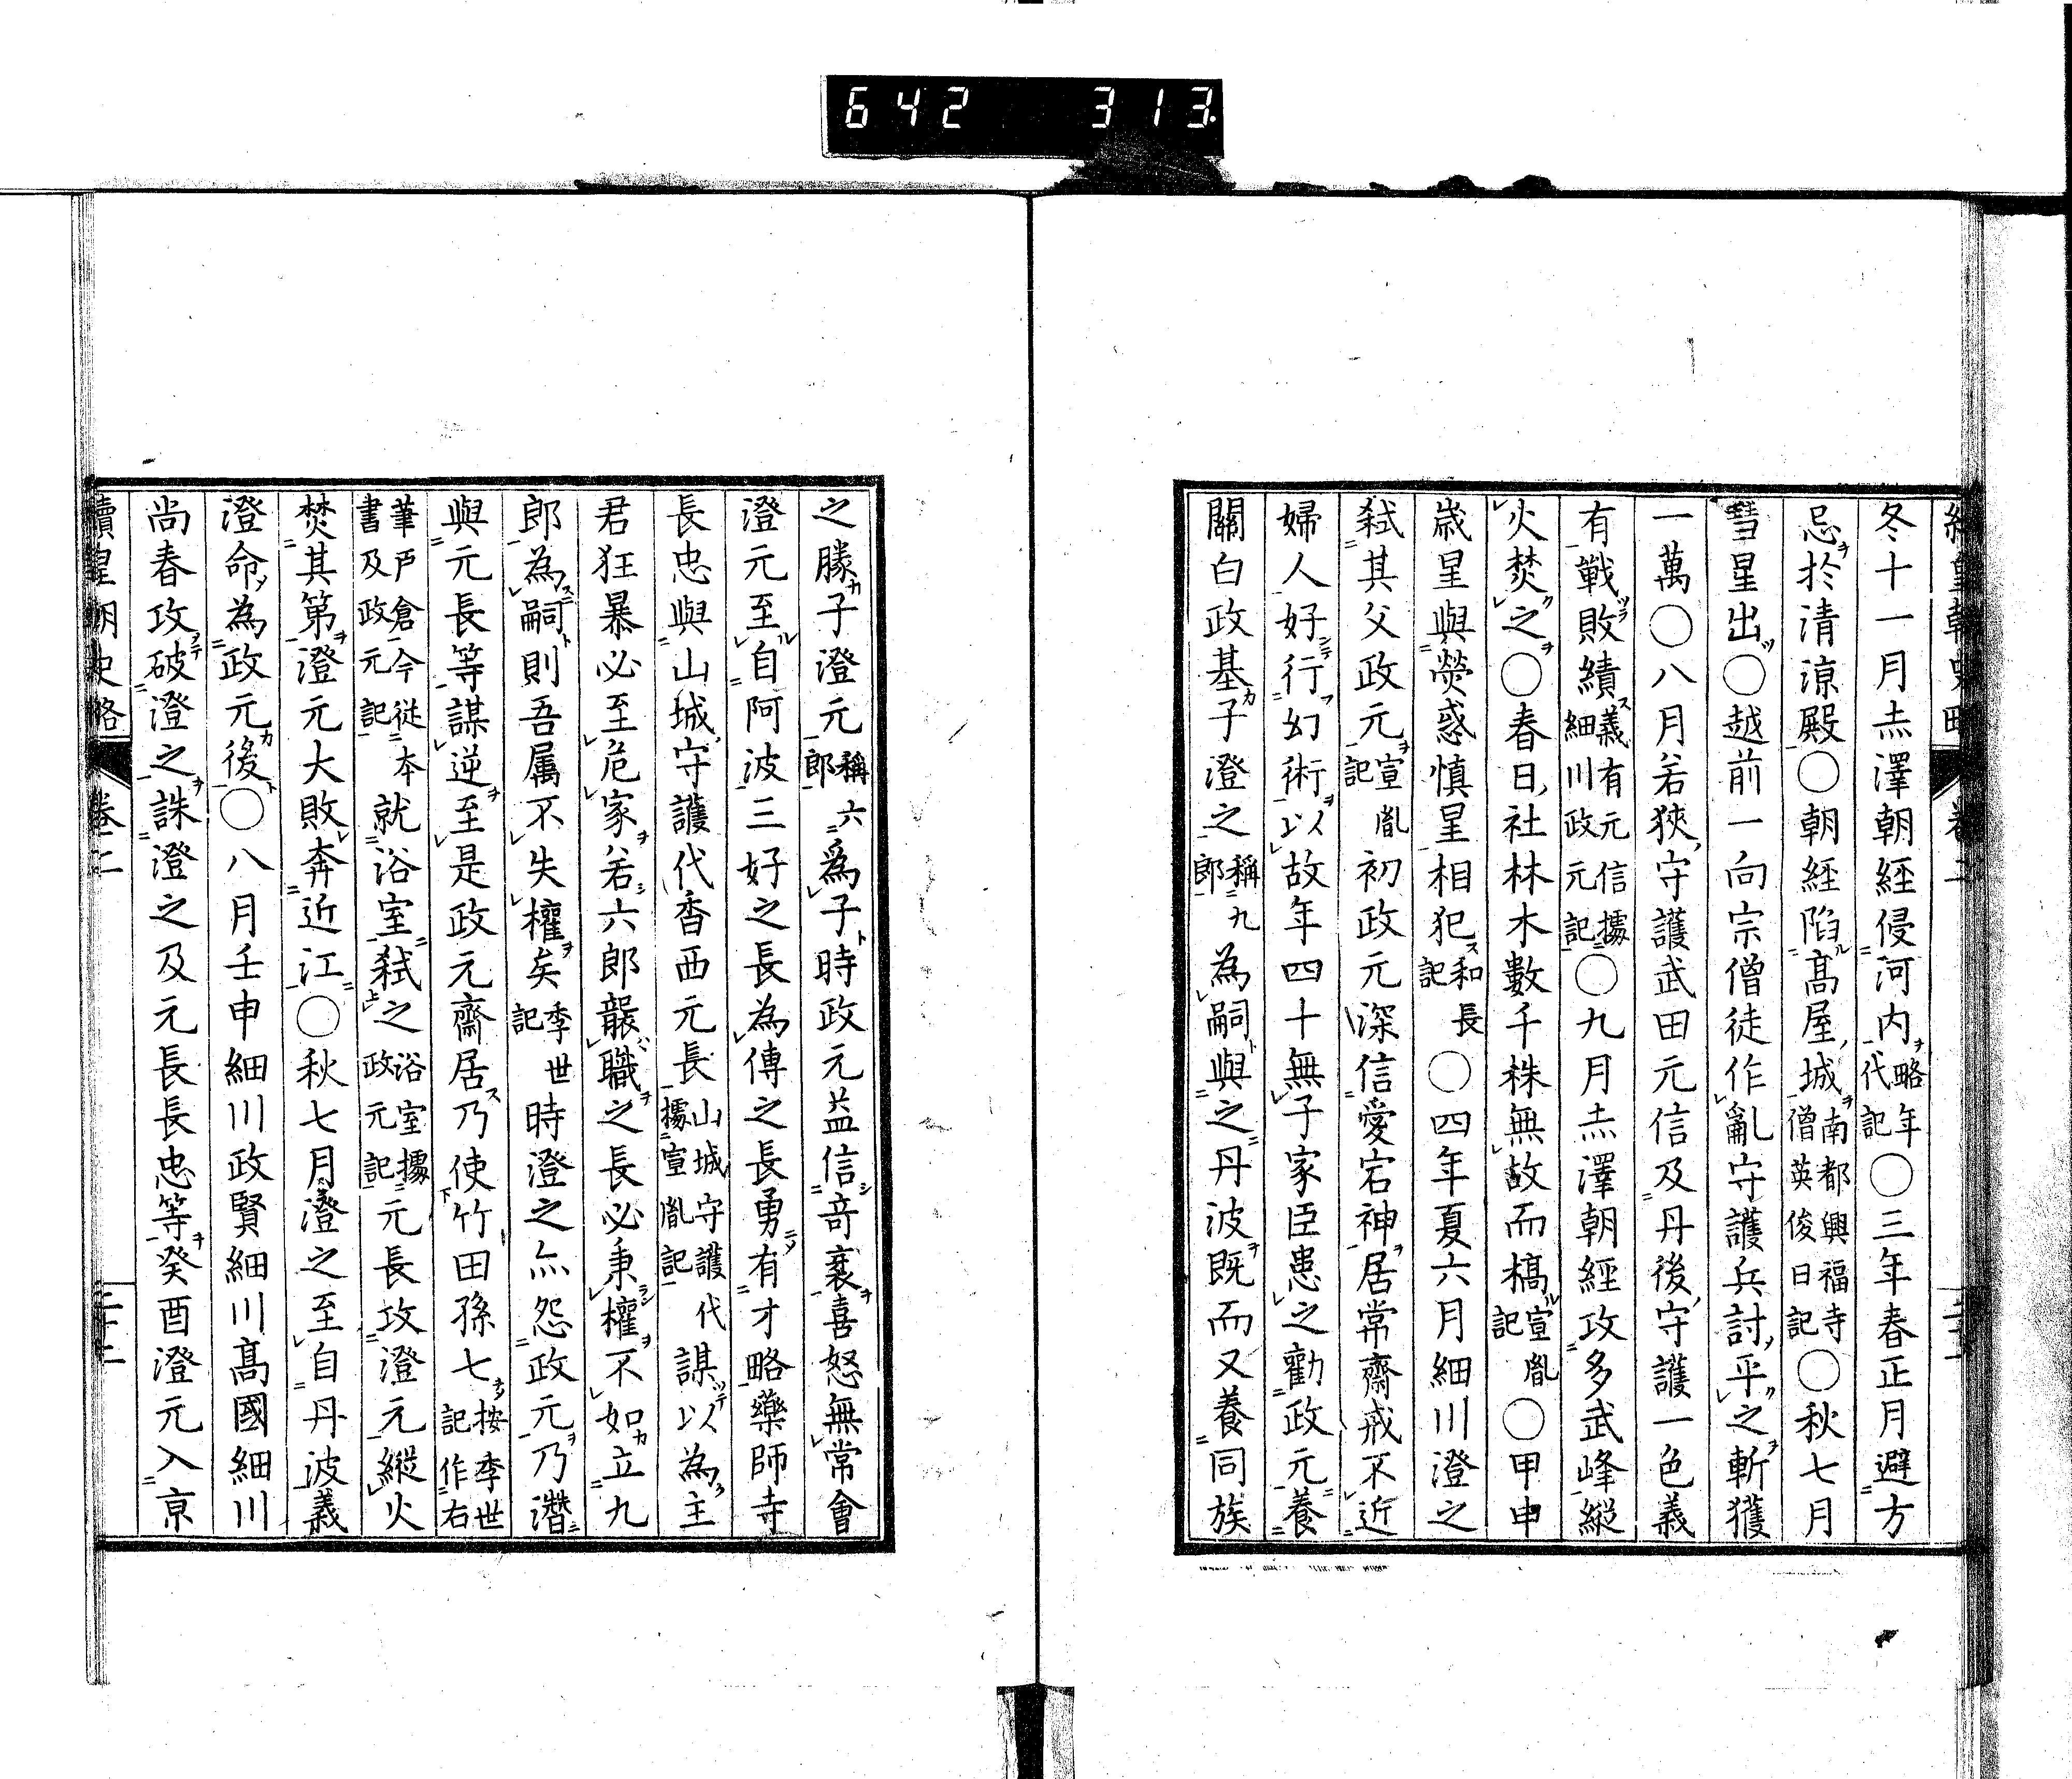 642 313
冬十一月赤澤朝經侵河内略年代記〇三年春正月避方
忌於清涼殿〇朝經陷高屋城南都興福寺僧英俊日記〇秋七月
彗星出〇越前一向宗僧徒作亂守護兵討平之斬獲
一萬〇八月若狹守護武田元信及丹後守護一色義
有戰敗績義有元信據細川政元記〇九月赤澤朝經攻多武峰縱
火焚之〇春日社林木數千株無故而槁宣胤記〇甲申
歲星與熒惑慎星相犯和長記〇四年夏六月細川澄之
弑其父政元宣胤記初政元深信愛宕神居常齋戒不近
婦人好行幻術以故年四十無子家臣患之勸政元養
關白政基子澄之稱九郎為嗣與之丹波既而又養同族
之勝子澄元稱六郎為子時政元益信奇衺喜怒無常會
澄元至自阿波三好之長為傅之長勇有才略藥師寺
長忠與山城守護代香西元長山城守護代據宣胤記謀以為主
君狂暴必至危家若六郎襲職之長必秉權不如立九
郎為嗣則吾属不失權矣季世記時澄之亦怨政元乃潛
與元長等謀逆至是政元齋居乃使竹田孫七按季世記作右
筆戸倉今從本書及政元記就浴室弑之浴室據政元記元長攻澄元縱火
焚其第澄元大敗奔近江〇秋七月澄之至自丹波義
澄命為政元後〇八月壬申細川政賢細川高國細川
尚春攻破澄之誅澄之及元長長忠等癸酉澄元入京
續皇朝史略 卷二